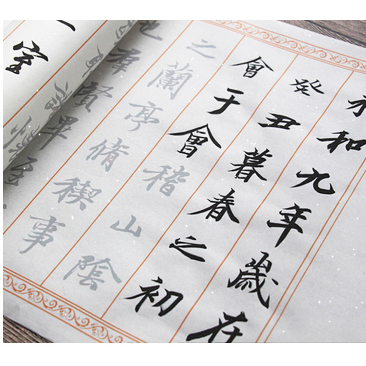 永和九年歲在
癸丑暮春之初
會于會稽山陰
之蘭亭脩禊事
也羣賢畢
室